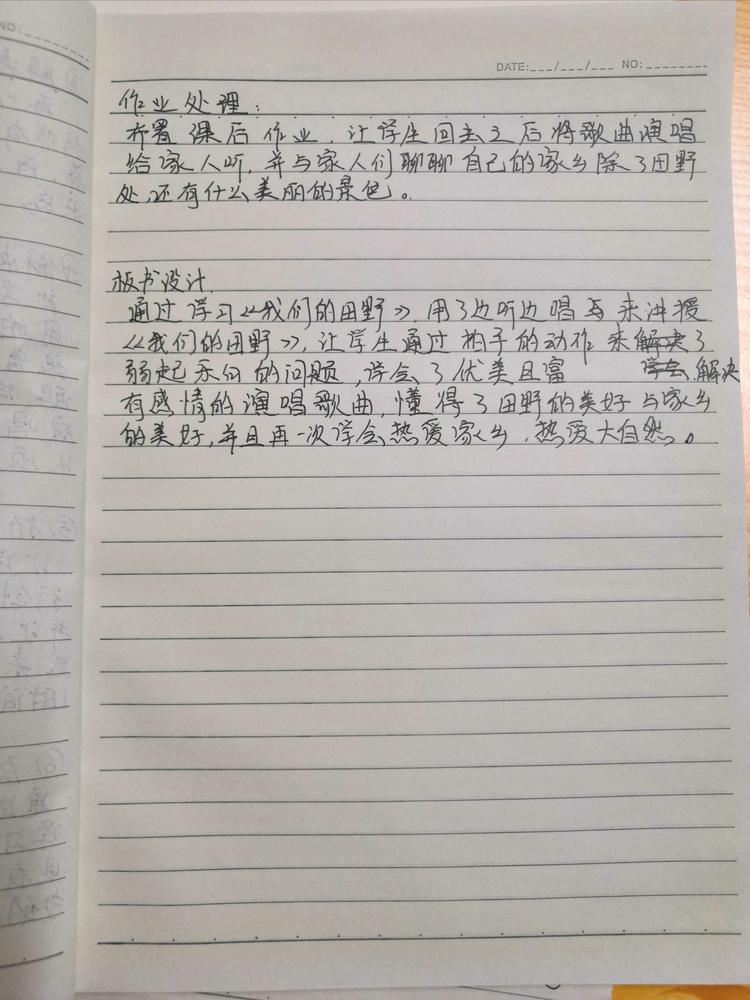 DATE:___/___/___ NO:________
作业处理：
布署课后作业，让学生回去之后将歌曲演唱
给家人听，并与家人们聊聊自己的家乡除了田野
处，还有什么美丽的景色。
板书设计
通过学习《我们的田野》，用了边听边唱与来讲授
《我们的田野》，让学生通过拍子的动作来解决了
弱起乐句的问题，学会了优美且富 学会，解决
有感情的演唱歌曲，懂得了田野的美好与家乡
的美好，并且再一次学会热爱家乡，热爱大自然。